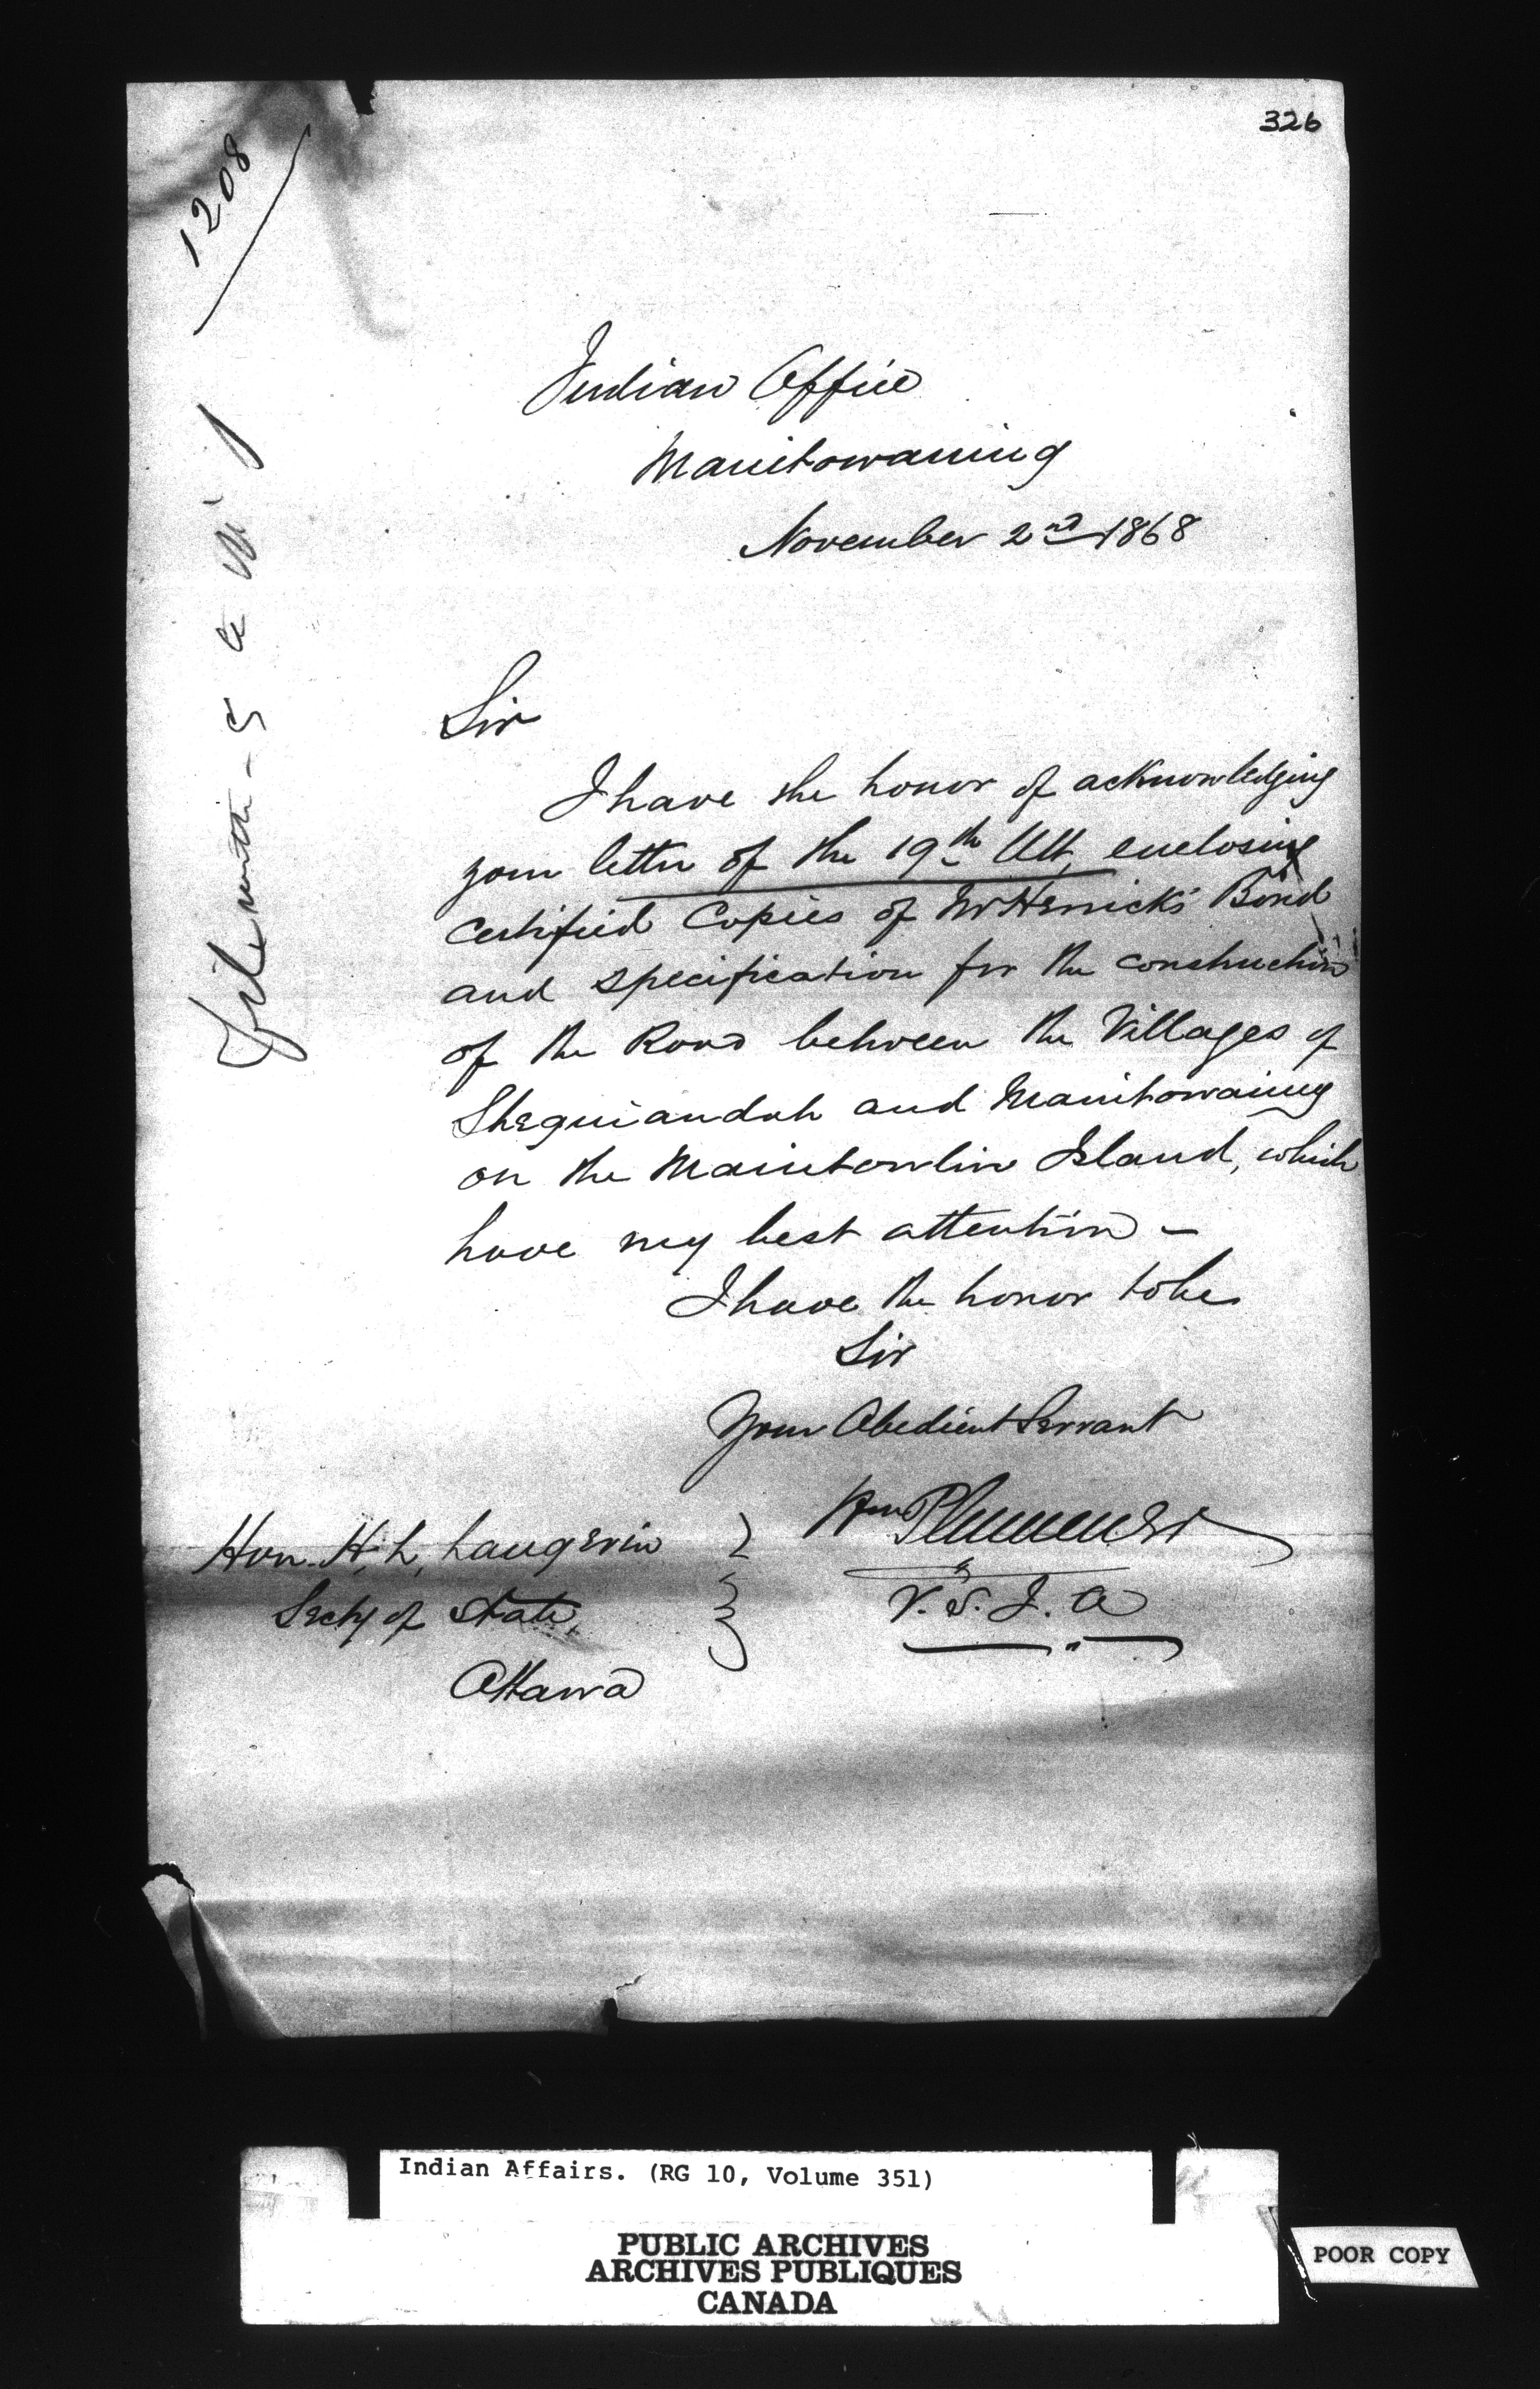 326
1208
File with
Indian Office
Manitowaning
November 2nd 1868
Sir
I have the honor of acknowledging
your letter of the 19th Ult, enclosing
Certified Copies of Mr Herrick's Bond
and specification for the construction
of the Road between the Villages of
Sheguiandah and Manitowaning
on the Manitowlin Island, which
have my best attention –
I have the honor to be
Sir
Your Obedient Servant
Wm Plummer
V. S. I. A
Hon. H. L. Langevin
Secty of State,
Ottawa
Indian Affairs. (RG 10, Volume 351)
PUBLIC ARCHIVES
ARCHIVES PUBLIQUES
CANADA
POOR COPY